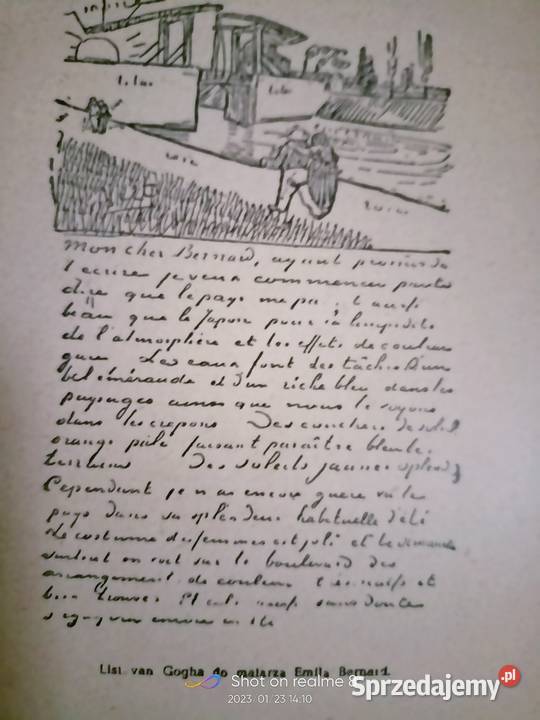 Mon cher Bernard, ayant promis de
t'écrire je veux commencer par te
dire que le pays me paraît aussi
beau que le Japon pour la limpidité
de l'atmosphère et les effets de couleur
gaie Les eaux font des tâches d'un
bel émeraude et d'un riche bleu dans les
paysages ainsi que nous le voyons
dans les crepons Des couchers de soleil
orangé pâle faisant paraître bleu les
terrains Des soleils jaunes splendides
Cependant je n'ai encore guère vu le
pays dans sa splendeur habituelle d'été
Le costume des femmes est joli et le dimanche
surtout on voit sur le boulevard des
arrangements de couleur très naïfs et
bien trouvés Et cela aussi sans doute
s'égayera encore en été
List van Gogha do malarza Emila Bernard.
Shot on realme 8
2023.01.23 14:10
Sprzedajemy.pl